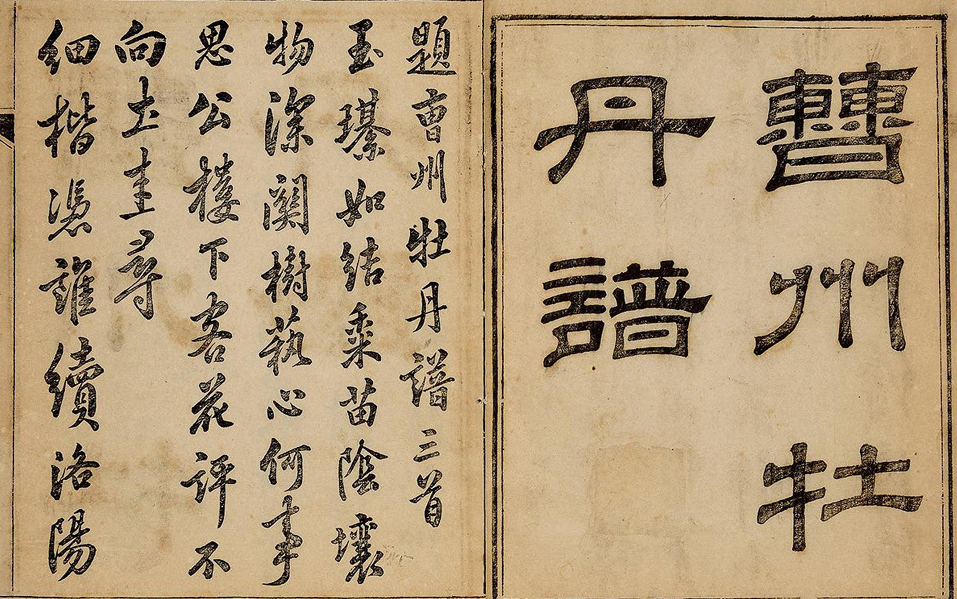 曹州牡
丹譜
題曹州牡丹譜三首
玉璂如結黍苗陰壤
物深關樹藝心何事
思公樓下客花評不
向土圭尋
細楷憑誰續洛陽